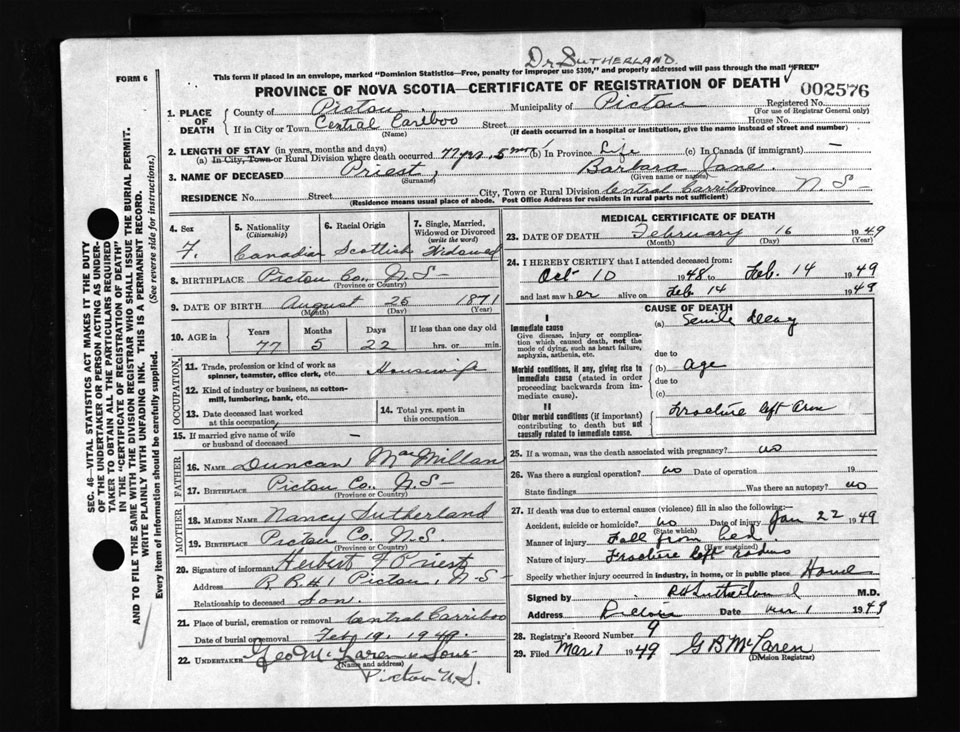 Dr SUTHERLAND.
FORM 6
This form if placed in an envelope, marked "Dominion Statistics—Free, penalty for improper use $300," and properly addressed will pass through the mail "FREE"
PROVINCE OF NOVA SCOTIA—CERTIFICATE OF REGISTRATION OF DEATH
002576
1. PLACE OF DEATH County of Pictou Municipality of Pictou Registered No.
(For use of Registrar General only)
If in City or Town Central Cariboo Street House No.
(Name) (If death occurred in a hospital or institution, give the name instead of street and number)
2. LENGTH OF STAY (in years, months and days)
(a) In City, Town or Rural Division where death occurred 77 yrs, 5 mos (b) In Province Life (c) In Canada (if immigrant) —
3. NAME OF DECEASED Priest, Barbara Jane.
(Surname) (Given name or names)
RESIDENCE No. Street City, Town or Rural Division Central Carribo Province N S—
(Residence means usual place of abode. Post Office Address for residents in rural parts not sufficient)
4. Sex
F.
5. Nationality (Citizenship)
Canadian
6. Racial Origin
Scottish
7. Single, Married, Widowed or Divorced (write the word)
Widowed
8. BIRTHPLACE Pictou Co., N.S—
(Province or Country)
9. DATE OF BIRTH August 26 1871
(Month) (Day) (Year)
10. AGE Years Months Days If less than one day old
77 5 22 hrs. or min.
OCCUPATION
11. Trade, profession or kind of work as spinner, teamster, office clerk, etc. Housewife
12. Kind of industry or business, as cotton-mill, lumbering, bank, etc.
13. Date deceased last worked at this occupation
14. Total yrs. spent in this occupation
15. If married give name of wife or husband of deceased —
FATHER
16. NAME Duncan MacMillan
17. BIRTHPLACE Pictou Co., N.S—
(Province or Country)
MOTHER
18. MAIDEN NAME Nancy Sutherland
19. BIRTHPLACE Pictou Co. N.S.
(Province or Country)
20. Signature of informant Herbert F Priest
Address R.R #1 Pictou, N-S—
Relationship to deceased Son.
21. Place of burial, cremation or removal Central Carriboo
Date of burial or removal Feb 19. 1949.
22. UNDERTAKER Geo McLaren & Sons
(Name and address)
Pictou N.S.
MEDICAL CERTIFICATE OF DEATH
23. DATE OF DEATH February 16 1949
(Month) (Day) (Year)
24. I HEREBY CERTIFY that I attended deceased from:
Oct 10 1948 to Feb. 14 1949
and last saw her alive on Feb 14 1949
CAUSE OF DEATH
I
Immediate cause
Give disease, injury or complication which caused death, not the mode of dying, such as heart failure, asphyxia, asthenia, etc.
(a) Senile decay
due to
Morbid conditions, if any, giving rise to immediate cause (stated in order proceeding backwards from immediate cause).
(b) Age
due to
(c)
II
Other morbid conditions (if important) contributing to death but not causally related to immediate cause.
Fracture left arm
25. If a woman, was the death associated with pregnancy? no
26. Was there a surgical operation? no Date of operation 19
State findings Was there an autopsy? no
27. If death was due to external causes (violence) fill in also the following:—
Accident, suicide or homicide? no Date of injury Jan 22 1949
(State which)
Manner of injury Fall from bed
(How sustained)
Nature of injury Fracture left radius
Specify whether injury occurred in industry, in home, or in public place Home
Signed by R H Sutherland M.D.
Address Pictou Date Mar 1 1949
28. Registrar's Record Number 9
29. Filed Mar 1 1949 G B McLaren
(Division Registrar)
SEC. 46—VITAL STATISTICS ACT MAKES IT THE DUTY
OF THE UNDERTAKER OR PERSON ACTING AS UNDERTAKER TO OBTAIN ALL THE PARTICULARS REQUIRED
IN THE "CERTIFICATE OF REGISTRATION OF DEATH"
AND TO FILE THE SAME WITH THE DIVISION REGISTRAR WHO SHALL ISSUE THE BURIAL PERMIT.
WRITE PLAINLY WITH UNFADING INK. THIS IS A PERMANENT RECORD.
Every item of information should be carefully supplied. (See reverse side for instructions.)